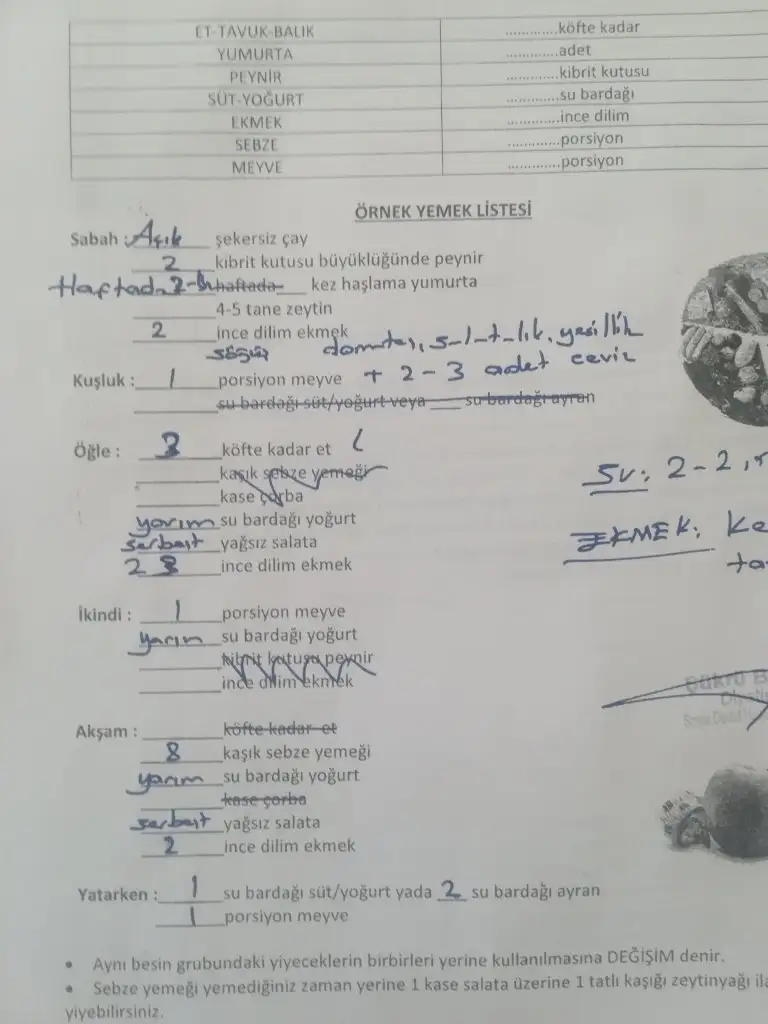 ET-TAVUK-BALIK .............köfte kadar
YUMURTA .............adet
PEYNİR .............kibrit kutusu
SÜT-YOĞURT .............su bardağı
EKMEK .............ince dilim
SEBZE .............porsiyon
MEYVE .............porsiyon
ÖRNEK YEMEK LİSTESİ
Sabah : Açık şekersiz çay
2 kibrit kutusu büyüklüğünde peynir
Haftada haftada kez haşlama yumurta
4-5 tane zeytin
2 ince dilim ekmek
söğüş domates, yeşillik
Kuşluk : 1 porsiyon meyve + 2-3 adet ceviz
su bardağı süt/yoğurt veya ___ su bardağı ayran
Öğle : 3 köfte kadar et
kaşık sebze yemeği
kase çorba
SU: 2-2,5
yarım su bardağı yoğurt
serbest yağsız salata
EKMEK: Ke
2 3 ince dilim ekmek
ta
İkindi : 1 porsiyon meyve
yarım su bardağı yoğurt
kibrit kutusu peynir
ince dilim ekmek
Şükrü B
Akşam : köfte kadar et
8 kaşık sebze yemeği
yarım su bardağı yoğurt
kase çorba
serbest yağsız salata
2 ince dilim ekmek
Yatarken : 1 su bardağı süt/yoğurt yada 2 su bardağı ayran
1 porsiyon meyve
• Aynı besin grubundaki yiyeceklerin birbirleri yerine kullanılmasına DEĞİŞİM denir.
• Sebze yemeği yemediğiniz zaman yerine 1 kase salata üzerine 1 tatlı kaşığı zeytinyağı ila
yiyebilirsiniz.